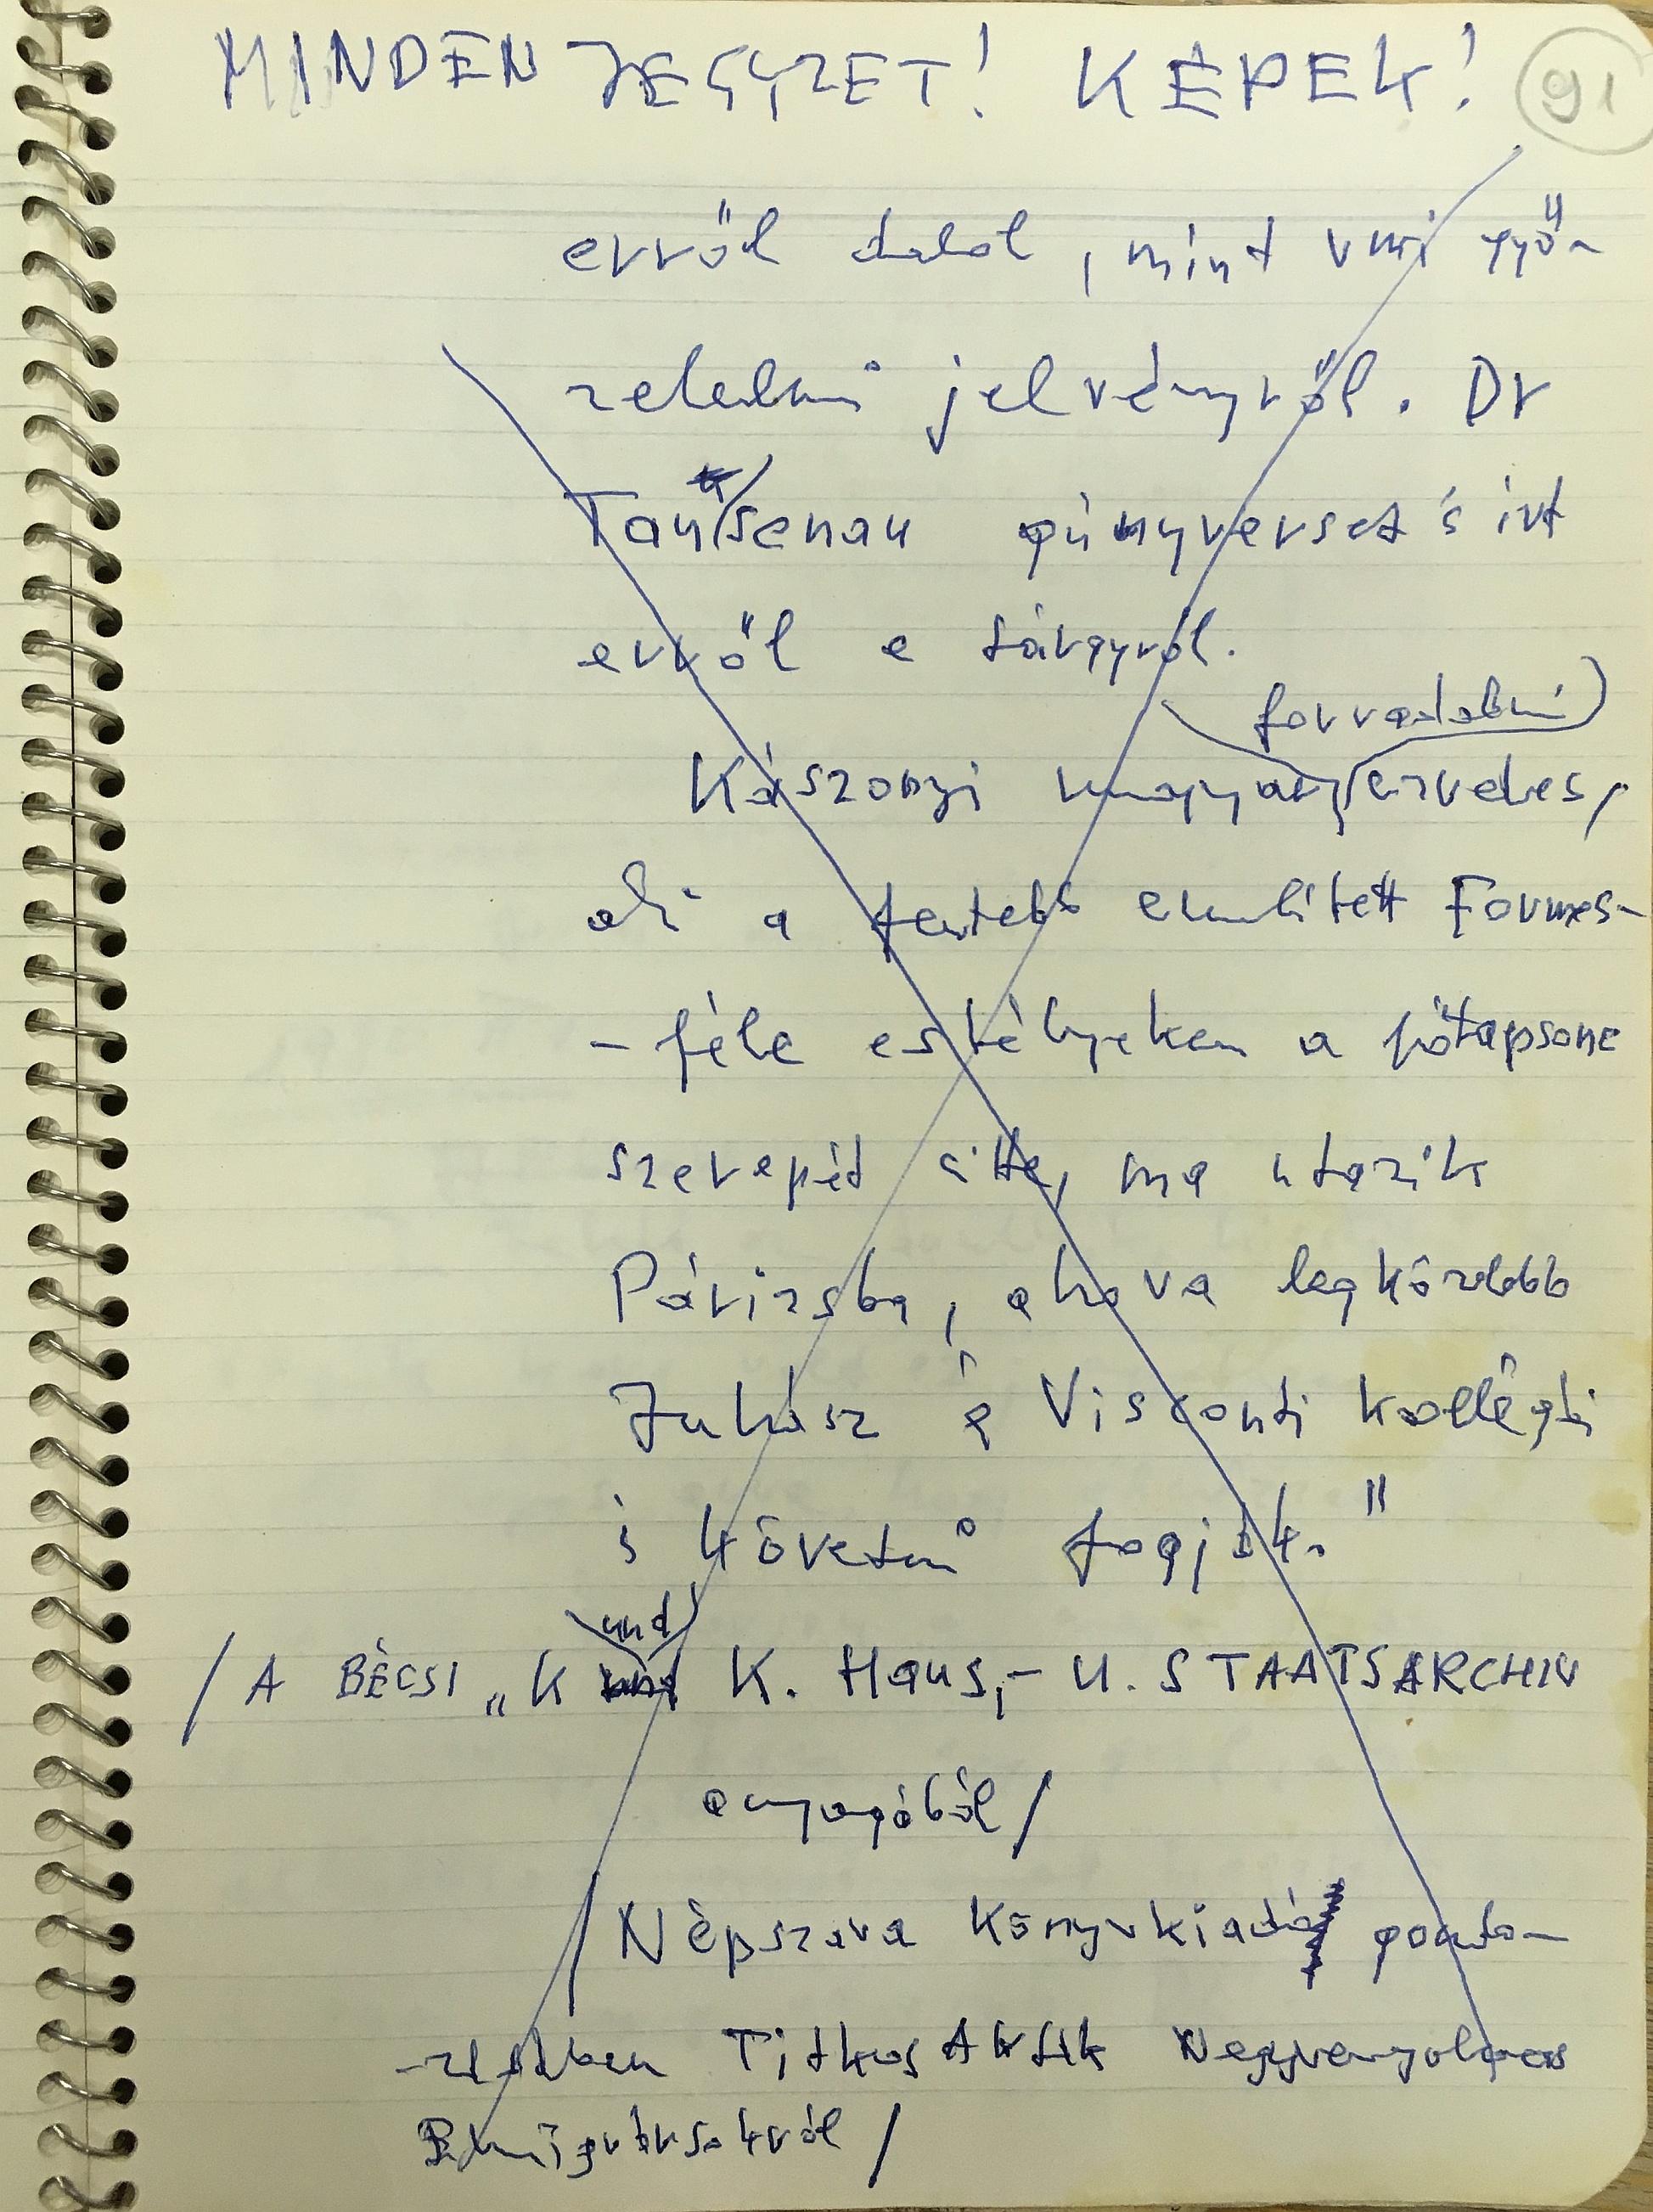 MINDEN JEGYZET! KÉPEK! 91
erről dalol, mint vmi győ-
zelelmi jelvényről. Dr
Tausenau gúnyverset is írt
erről e tárgyról.
forradalmi
Kászonyi magyar ezredes,
aki a fentebb említett Formes-
-féle estélyeken a
szerepét vitte, ma utazik
Párizsba, ahova legközelebb
Juhász és Visconti kollégái
is követni fogják."
und
/A BÉCSI „K K. Haus,- U. STAATSARCHIV
anyagából/
/Népszava Könyvkiadó gondo-
-zásban Titkos Akták Negyvennyolcas
Emigránsokról/